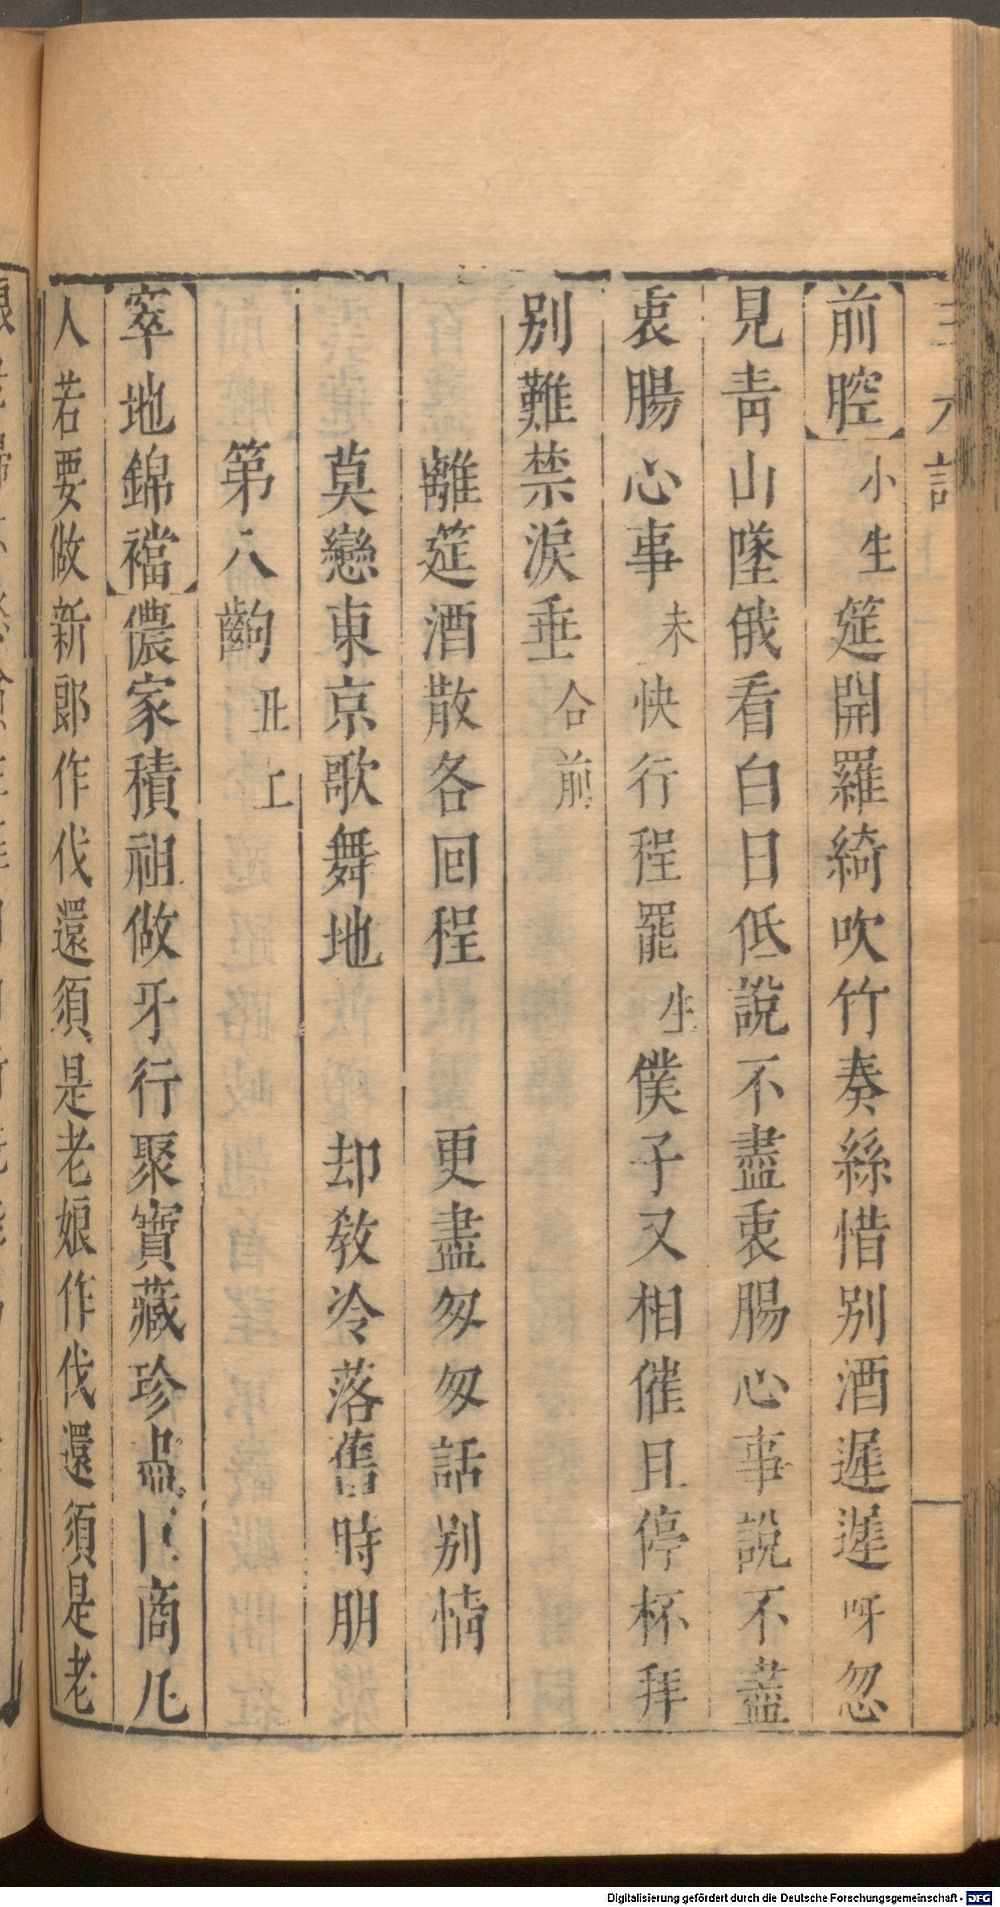 【前腔】小生筵開羅綺吹竹奏絲惜别酒遲遲呀忽
見青山墜俄看白日低說不盡衷腸心事說不盡
衷腸心事末快行程罷生僕子又相催且停杯拜
别難禁淚垂合前
離筵酒散各回程　更盡匆匆話别情
莫戀東京歌舞地　却教冷落舊時朋
第八齣丑上
【窣地錦襠】儂家積祖做牙行聚寶藏珍　　商凡
人若要做新郎作伐還須是老娘作伐還須是老
Digitalisierung gefördert durch die Deutsche Forschungsgemeinschaft - DFG